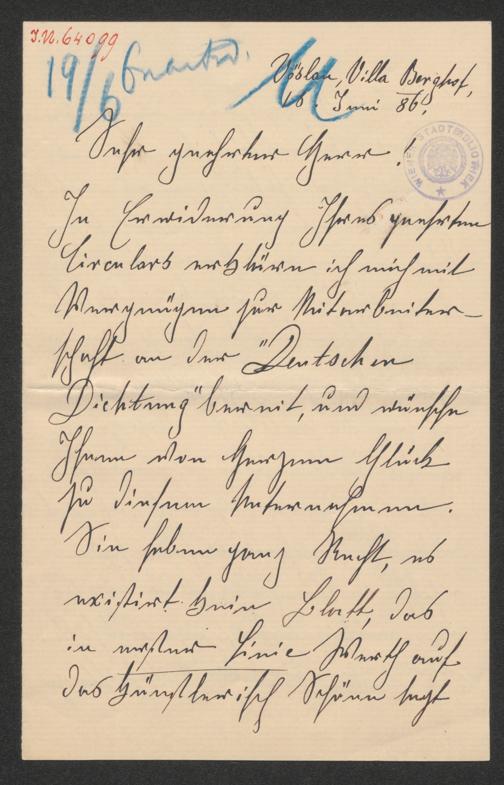 J.N. 64099
19/6
Vöslau, Villa Berghof,
16. Juni 86.
WIENER STADTBIBLIOTHEK
Sehr geehrter Herr!
In Erwiderung Ihres geehrten
Circulars erkläre ich mich mit
Vergnügen zur Mitarbeiter-
schaft an der "Deutschen
Dichtung" bereit, und wünsche
Ihnen von Herzen Glück
zu diesem Unternehmen.
Sie haben ganz Recht, es
existirt kein Blatt, das
in erster Linie Werth auf
das künstlerisch Schöne legt